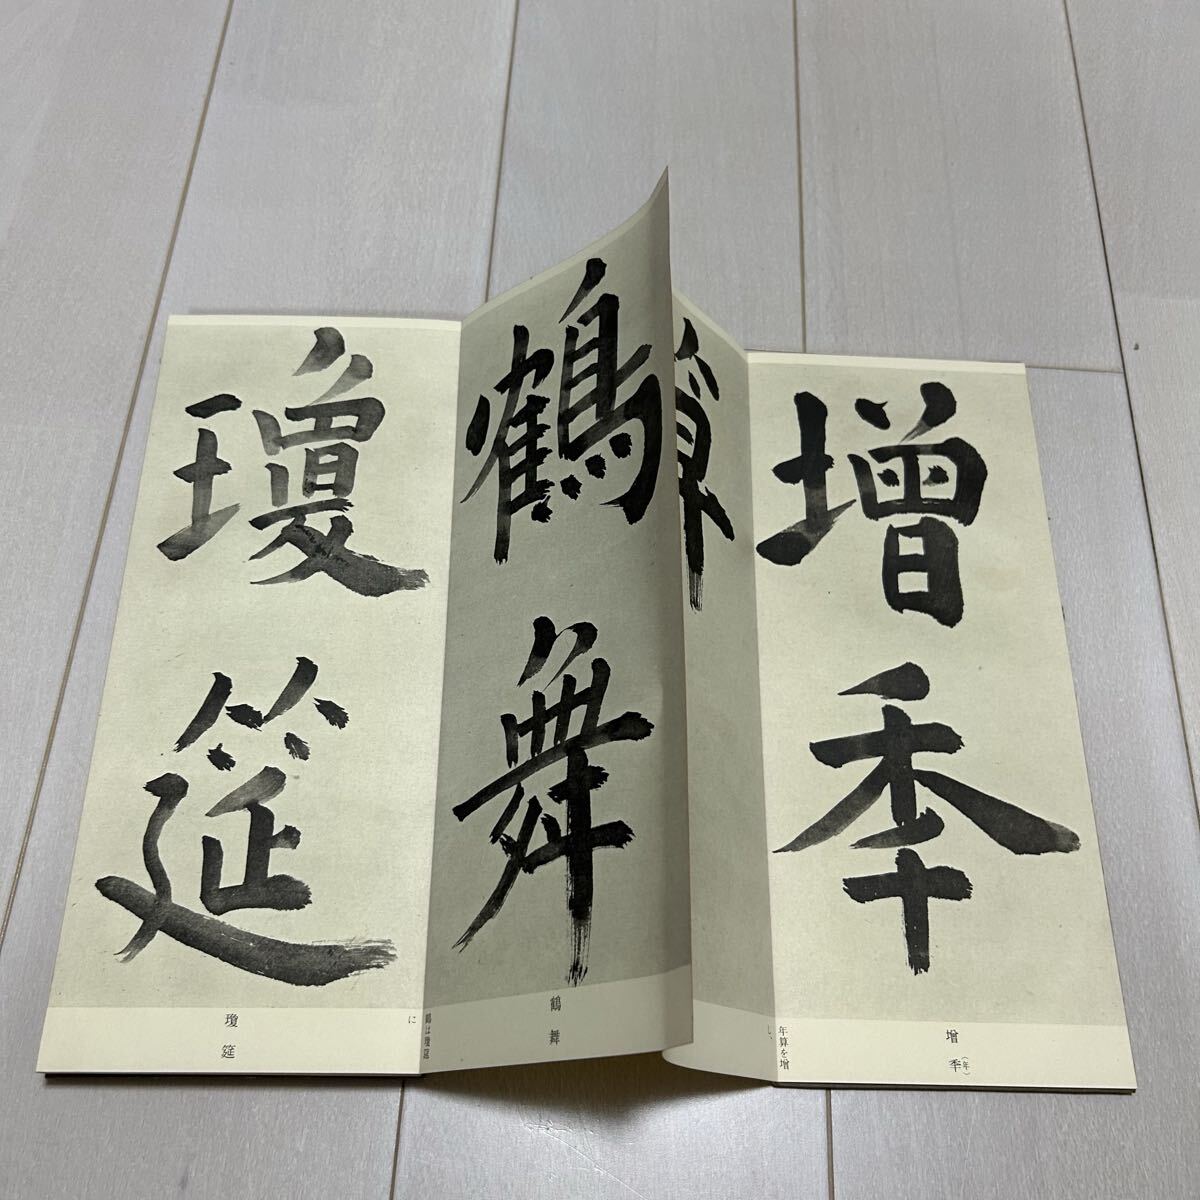 增秊
增秊（年）
年算を增
し、
算
鶴舞
鶴舞
鶴は瓊筵
に
瓊筵
瓊筵